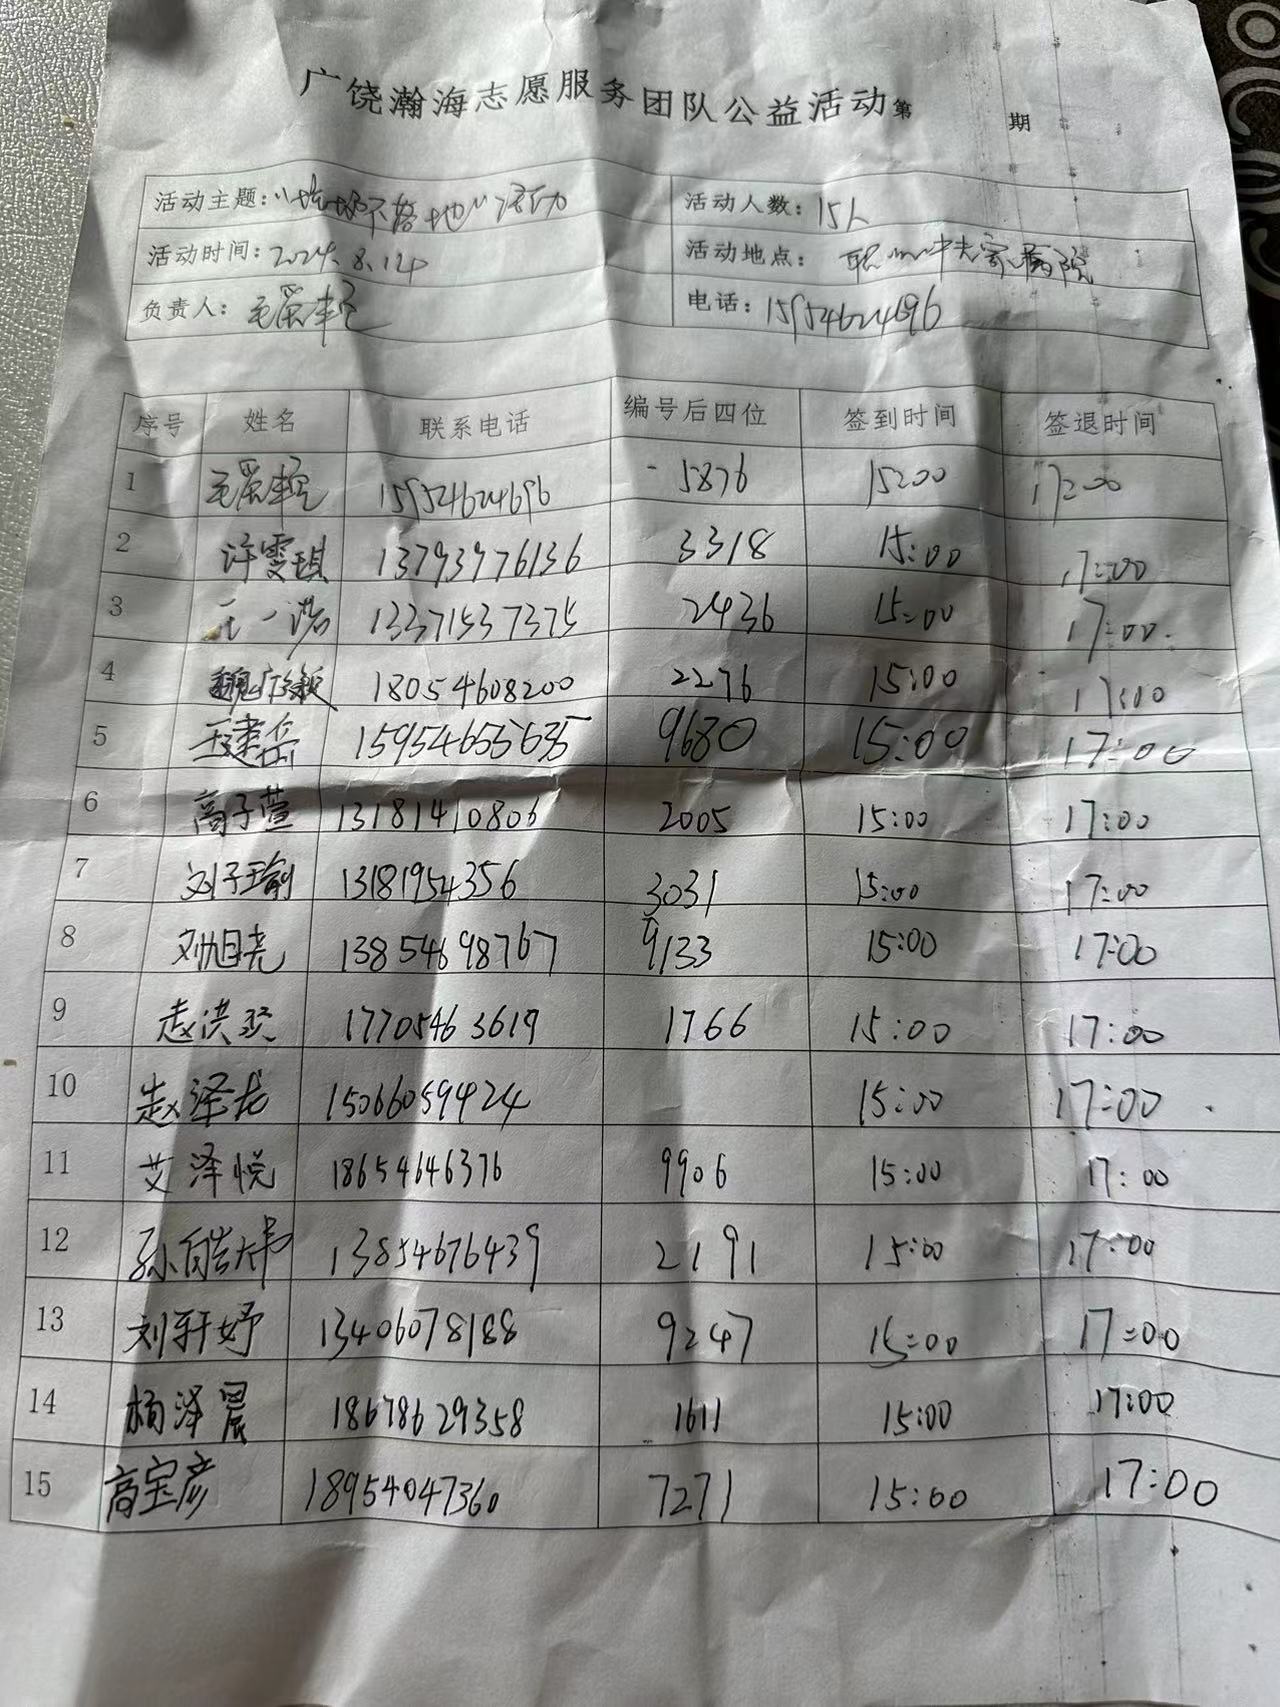 广饶瀚海志愿服务团队公益活动第 期
活动主题: "垃圾不落地"活动 活动人数: 15人
活动时间: 2024.8.12 活动地点:
负责人: 电话: 15954624696
序号 姓名 联系电话 编号后四位 签到时间 签退时间
1 15954624696 5876 15:00 17:00
2 许雯琪 13793976136 3318 15:00 17:00
3 王一诺 13371537375 2436 15:00 17:00.
4 18054608200 2276 15:00 17:00
5 王建岳 9680 15:00 17:00
6 高子萱 13181410806 2005 15:00 17:00
7 刘子瑜 13181954356 3031 15:00 17:00
8 刘旭尧 13854698767 9133 15:00 17:00
9 赵洪 17705463619 1766 15:00 17:00
10 赵泽龙 15066059424 15:00 17:00
11 艾泽悦 18654646376 9906 15:00 17:00
12 孙皓 13854676439 2191 15:00 17:00
13 刘轩妤 13406078188 9247 15:00 17:00
14 杨泽晨 18678629358 1611 15:00 17:00
15 高宝彦 18954047360 7271 15:00 17:00